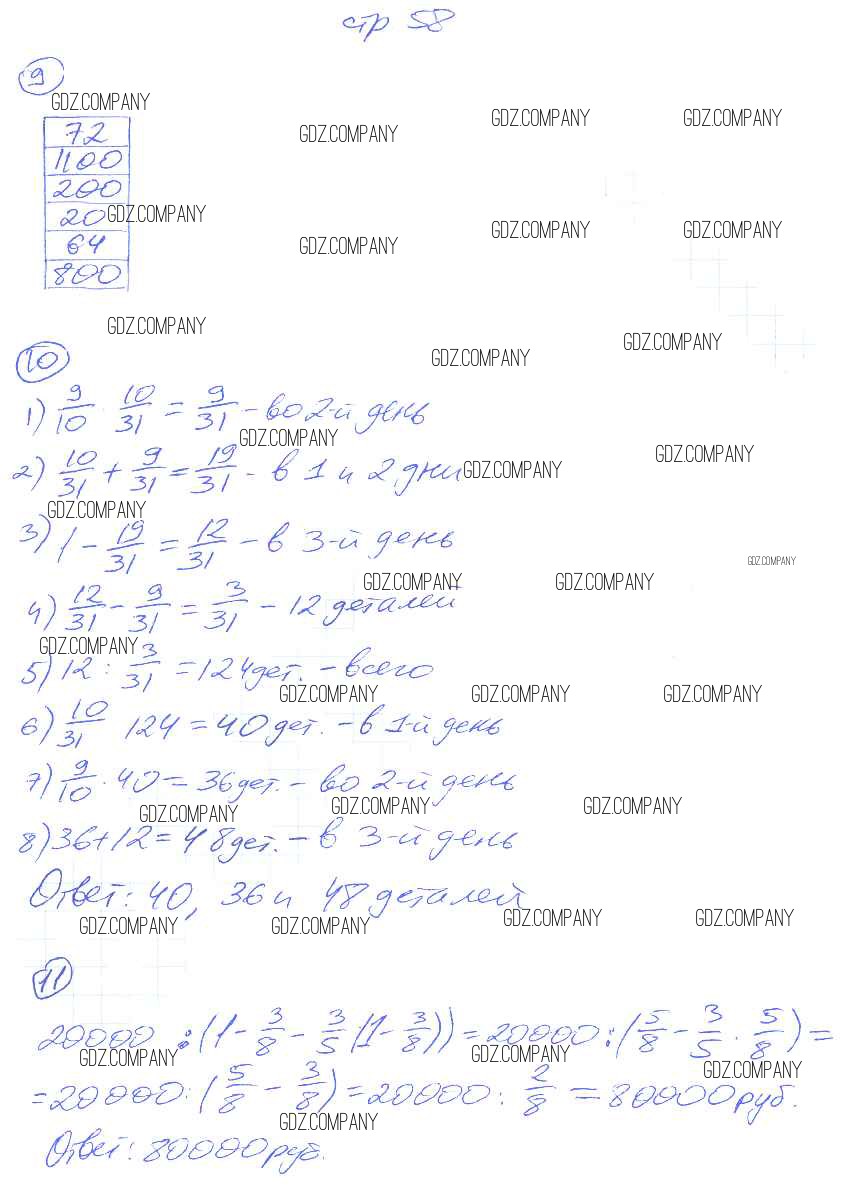 стр 58
9
GDZ.COMPANY
GDZ.COMPANY GDZ.COMPANY GDZ.COMPANY
72
1100
200
20 GDZ.COMPANY
64
GDZ.COMPANY GDZ.COMPANY GDZ.COMPANY
800
GDZ.COMPANY
10
GDZ.COMPANY GDZ.COMPANY
1) 9/10 · 10/31 = 9/31 - во 2-й день
GDZ.COMPANY
2) 10/31 + 9/31 = 19/31 - в 1 и 2 дни GDZ.COMPANY GDZ.COMPANY
GDZ.COMPANY
3) 1 - 19/31 = 12/31 - в 3-й день
GDZ.COMPANY
GDZ.COMPANY GDZ.COMPANY
4) 12/31 - 9/31 = 3/31 - 12 деталей
GDZ.COMPANY
5) 12 : 3/31 = 124 дет. - всего
GDZ.COMPANY GDZ.COMPANY GDZ.COMPANY
6) 10/31 124 = 40 дет. - в 1-й день
7) 9/10 · 40 = 36 дет. - во 2-й день
GDZ.COMPANY GDZ.COMPANY GDZ.COMPANY
8) 36 + 12 = 48 дет. - в 3-й день
Ответ: 40, 36 и 48 деталей
GDZ.COMPANY GDZ.COMPANY GDZ.COMPANY GDZ.COMPANY
11
20000 : (1 - 3/8 - 3/5 (1 - 3/8)) = 20000 : (5/8 - 3/5 · 5/8) =
GDZ.COMPANY GDZ.COMPANY GDZ.COMPANY
= 20000 : (5/8 - 3/8) = 20000 : 2/8 = 80000 руб.
GDZ.COMPANY
Ответ: 80000 руб.